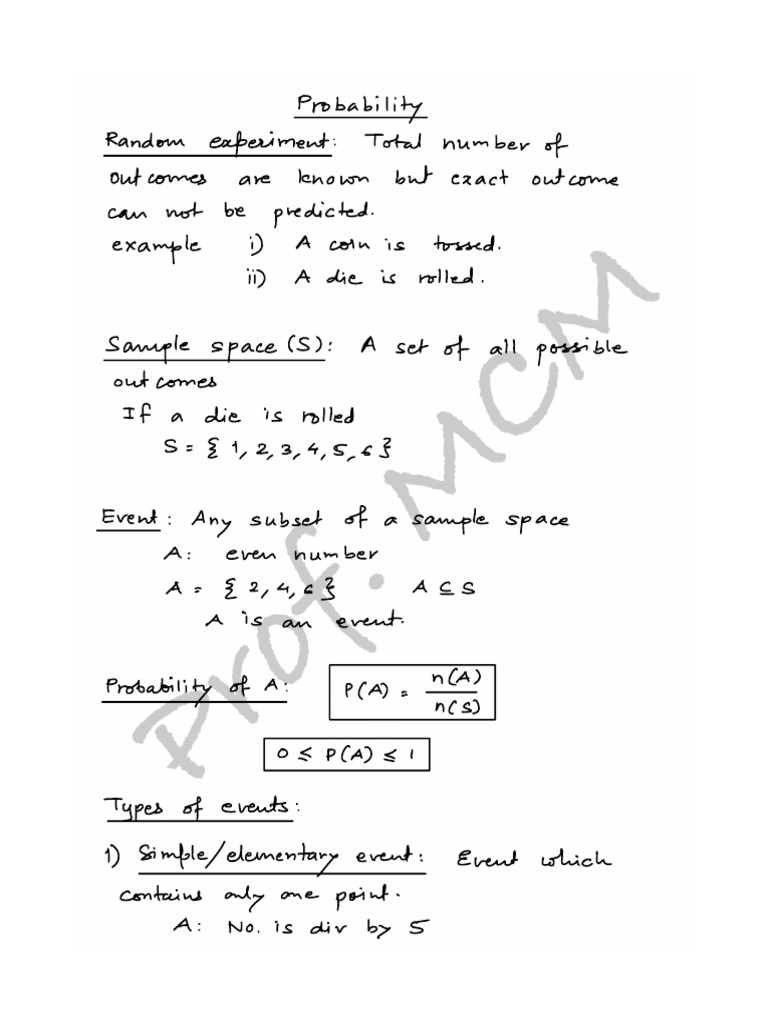 Probability
Random experiment: Total number of
outcomes are known but exact outcome
can not be predicted.
example i) A coin is tossed.
ii) A die is rolled.
Sample space (S): A set of all possible
outcomes
If a die is rolled
S = { 1, 2, 3, 4, 5, 6 }
Event: Any subset of a sample space
A: even number
A = { 2, 4, 6 } A ⊆ S
A is an event.
Probability of A: P(A) = n(A) / n(S)
0 ≤ P(A) ≤ 1
Types of events:
1) Simple/elementary event: Event which
contains only one point.
A: No. is div by 5
Prof. MCM